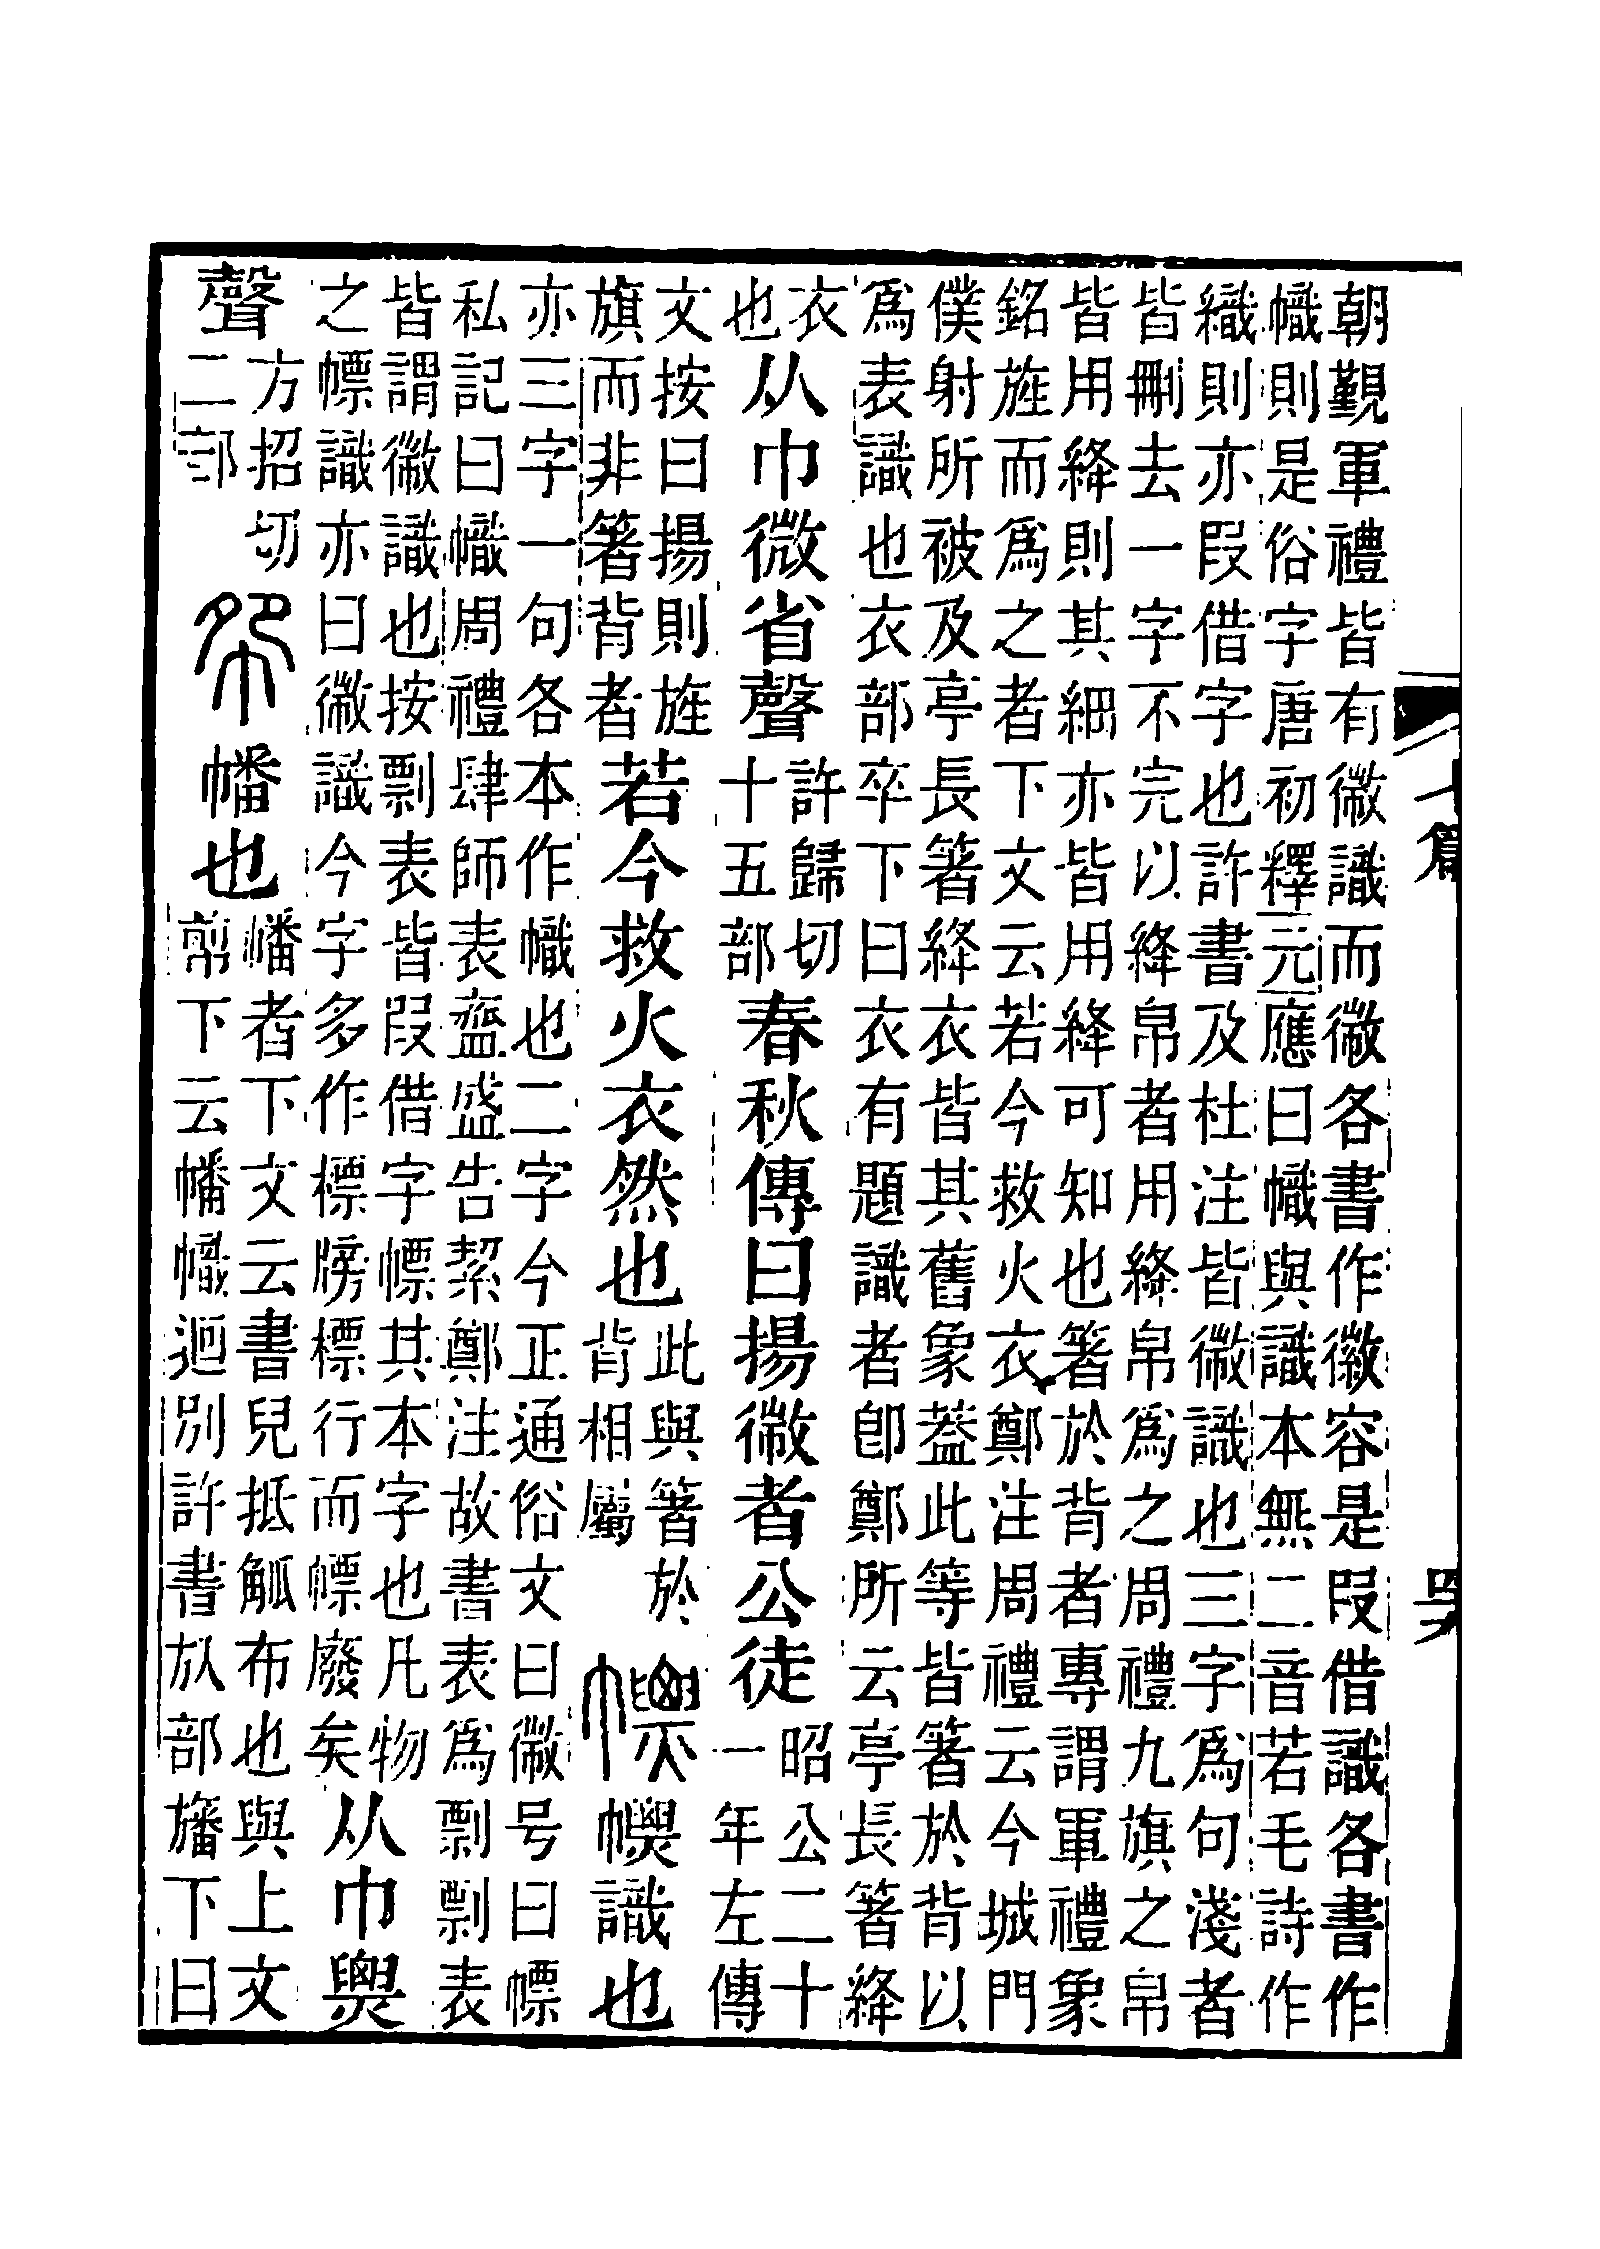 朝覲軍禮皆有幑識而幑各書作徽容是叚借識各書作
幟則是俗字唐初釋元應曰幟與識本無二音若毛詩作
織則亦叚借字也許書及杜注皆幑識也三字爲句淺者
皆刪去一字不完以絳帛者用絳帛爲之周禮九旗之帛
皆用絳則其細亦皆用絳可知也箸於背者專謂軍禮象
銘旌而爲之者下文云若今救火衣鄭注周禮云今城門
僕射所被及亭長箸絳衣皆其舊象葢此等皆箸於背以
爲表識也衣部卒下曰衣有題識者卽鄭所云亭長箸絳
衣也从巾微省聲許歸切十五部春秋傳曰揚幑者公徒昭公二十一年左傳
文按曰揚則旌旗而非箸背者若今救火衣然也此與箸於背相屬幖識也
亦三字一句各本作幟也二字今正通俗文曰幑号曰幖
私記曰幟周禮肆師表齍盛告絜鄭注故書表爲剽剽表
皆謂幑識也按剽表皆叚借字幖其本字也凡物
之幖識亦曰幑識今字多作標牓標行而幖廢矣从巾𤐫
聲方招切二部幡也幡者下文云書兒抵觚布也與上文
剪下云幡幟迥別許書㫃部旛下曰
七篇